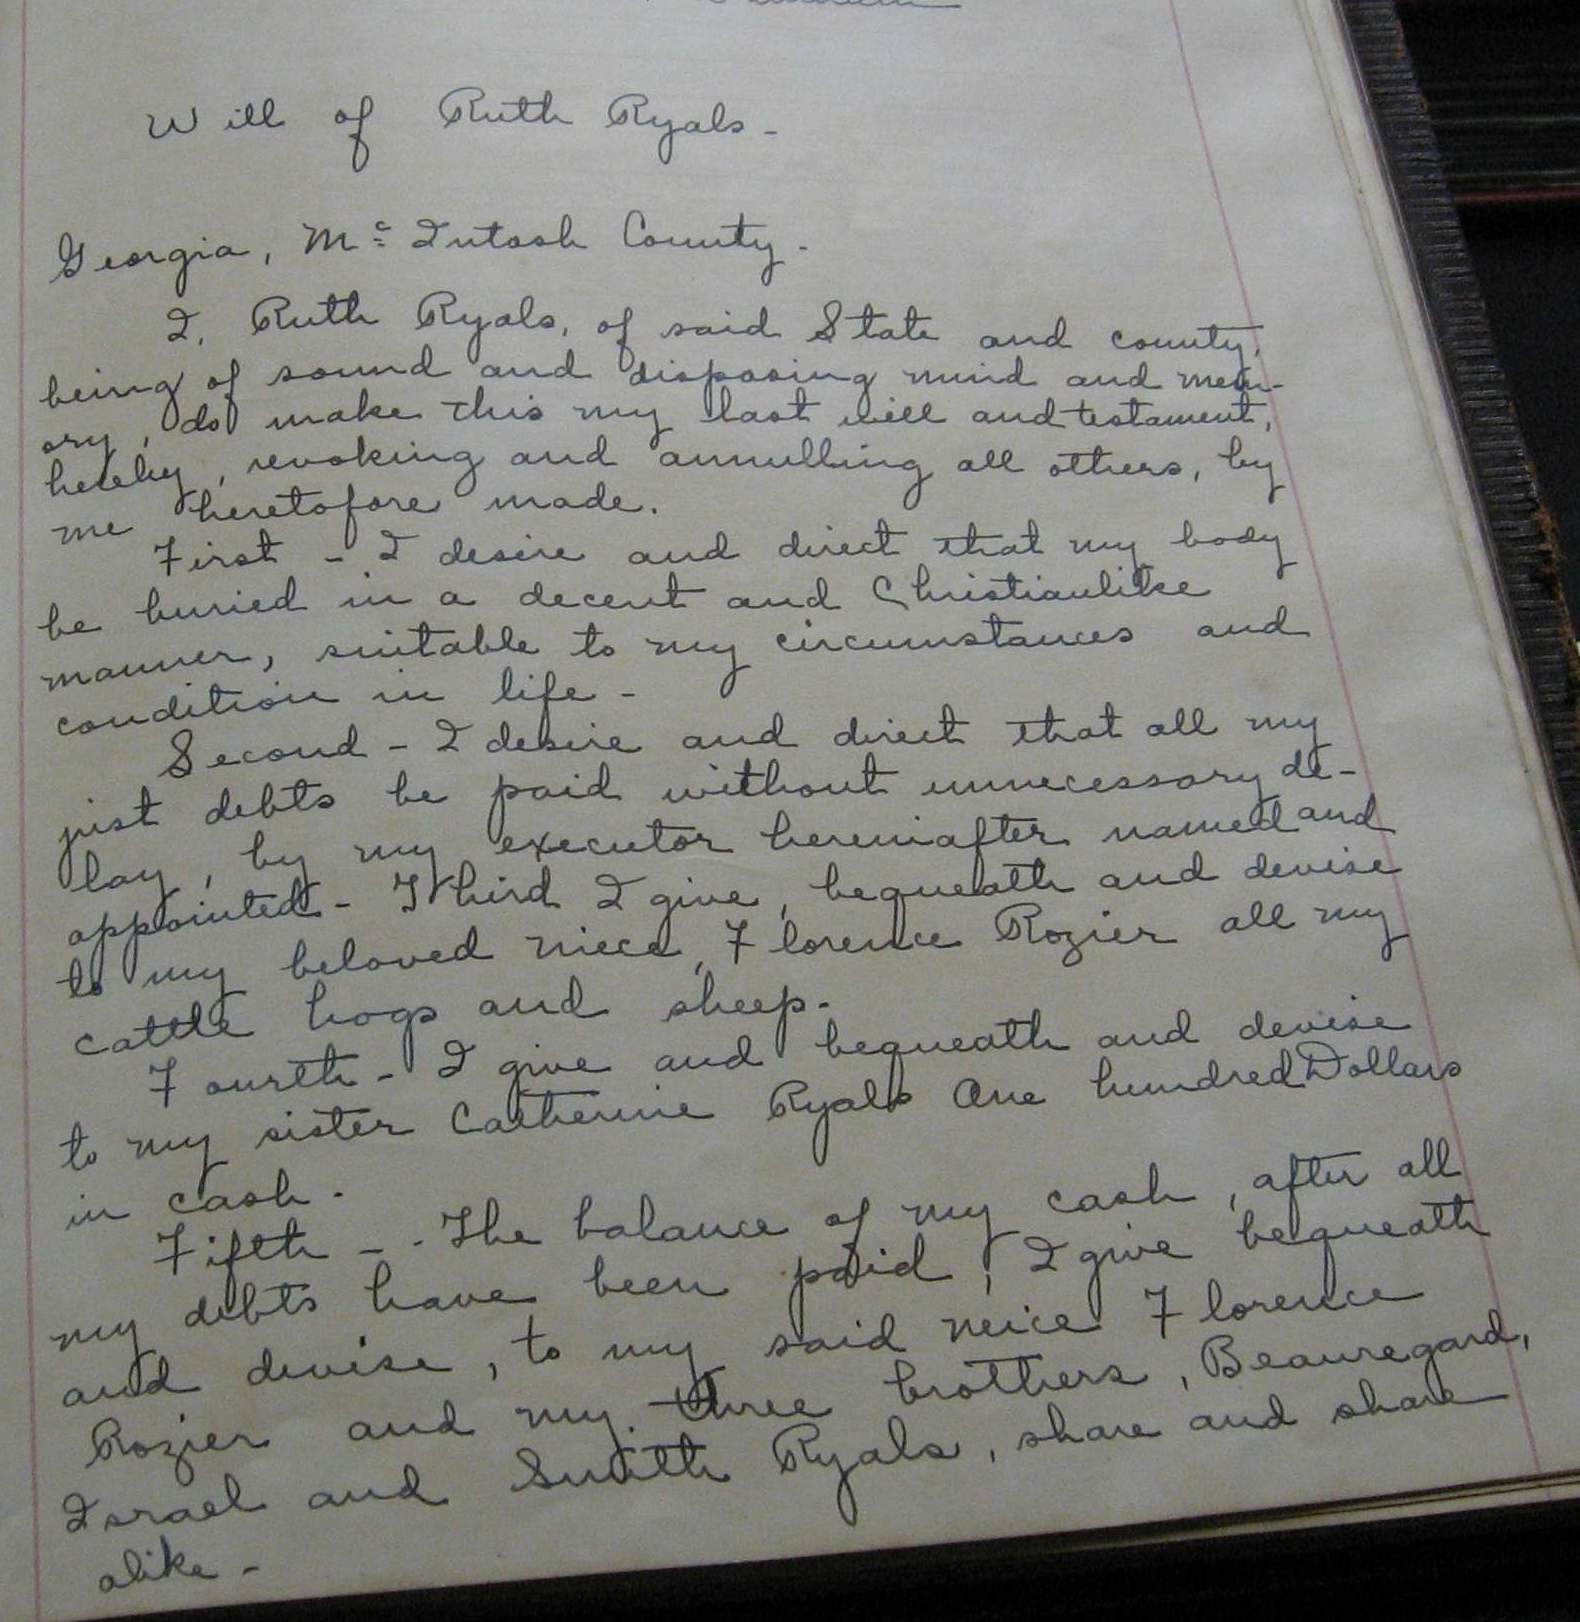 Will of Ruth Ryals -
Georgia, Mc Intosh County -
I, Ruth Ryals, of said State and county,
being of sound and disposing mind and mem-
ory, do make this my last will and testament,
hereby, revoking and annulling all others, by
me heretofore made.
First - I desire and direct that my body
be buried in a decent and Christianlike
manner, suitable to my circumstances and
condition in life -
Second - I desire and direct that all my
just debts be paid without unnecessary de-
lay, by my executor hereinafter named and
appointed - Third I give, bequeath and devise
to my beloved niece, Florence Rozier all my
cattle hogs and sheep -
Fourth - I give and bequeath and devise
to my sister Catherine Ryals One hundred Dollars
in cash -
Fifth - - The balance of my cash, after all
my debts have been paid, I give bequeath
and devise, to my said neice Florence
Rozier and my three brothers, Beauregard,
Israel and Smith Ryals, share and share
alike -